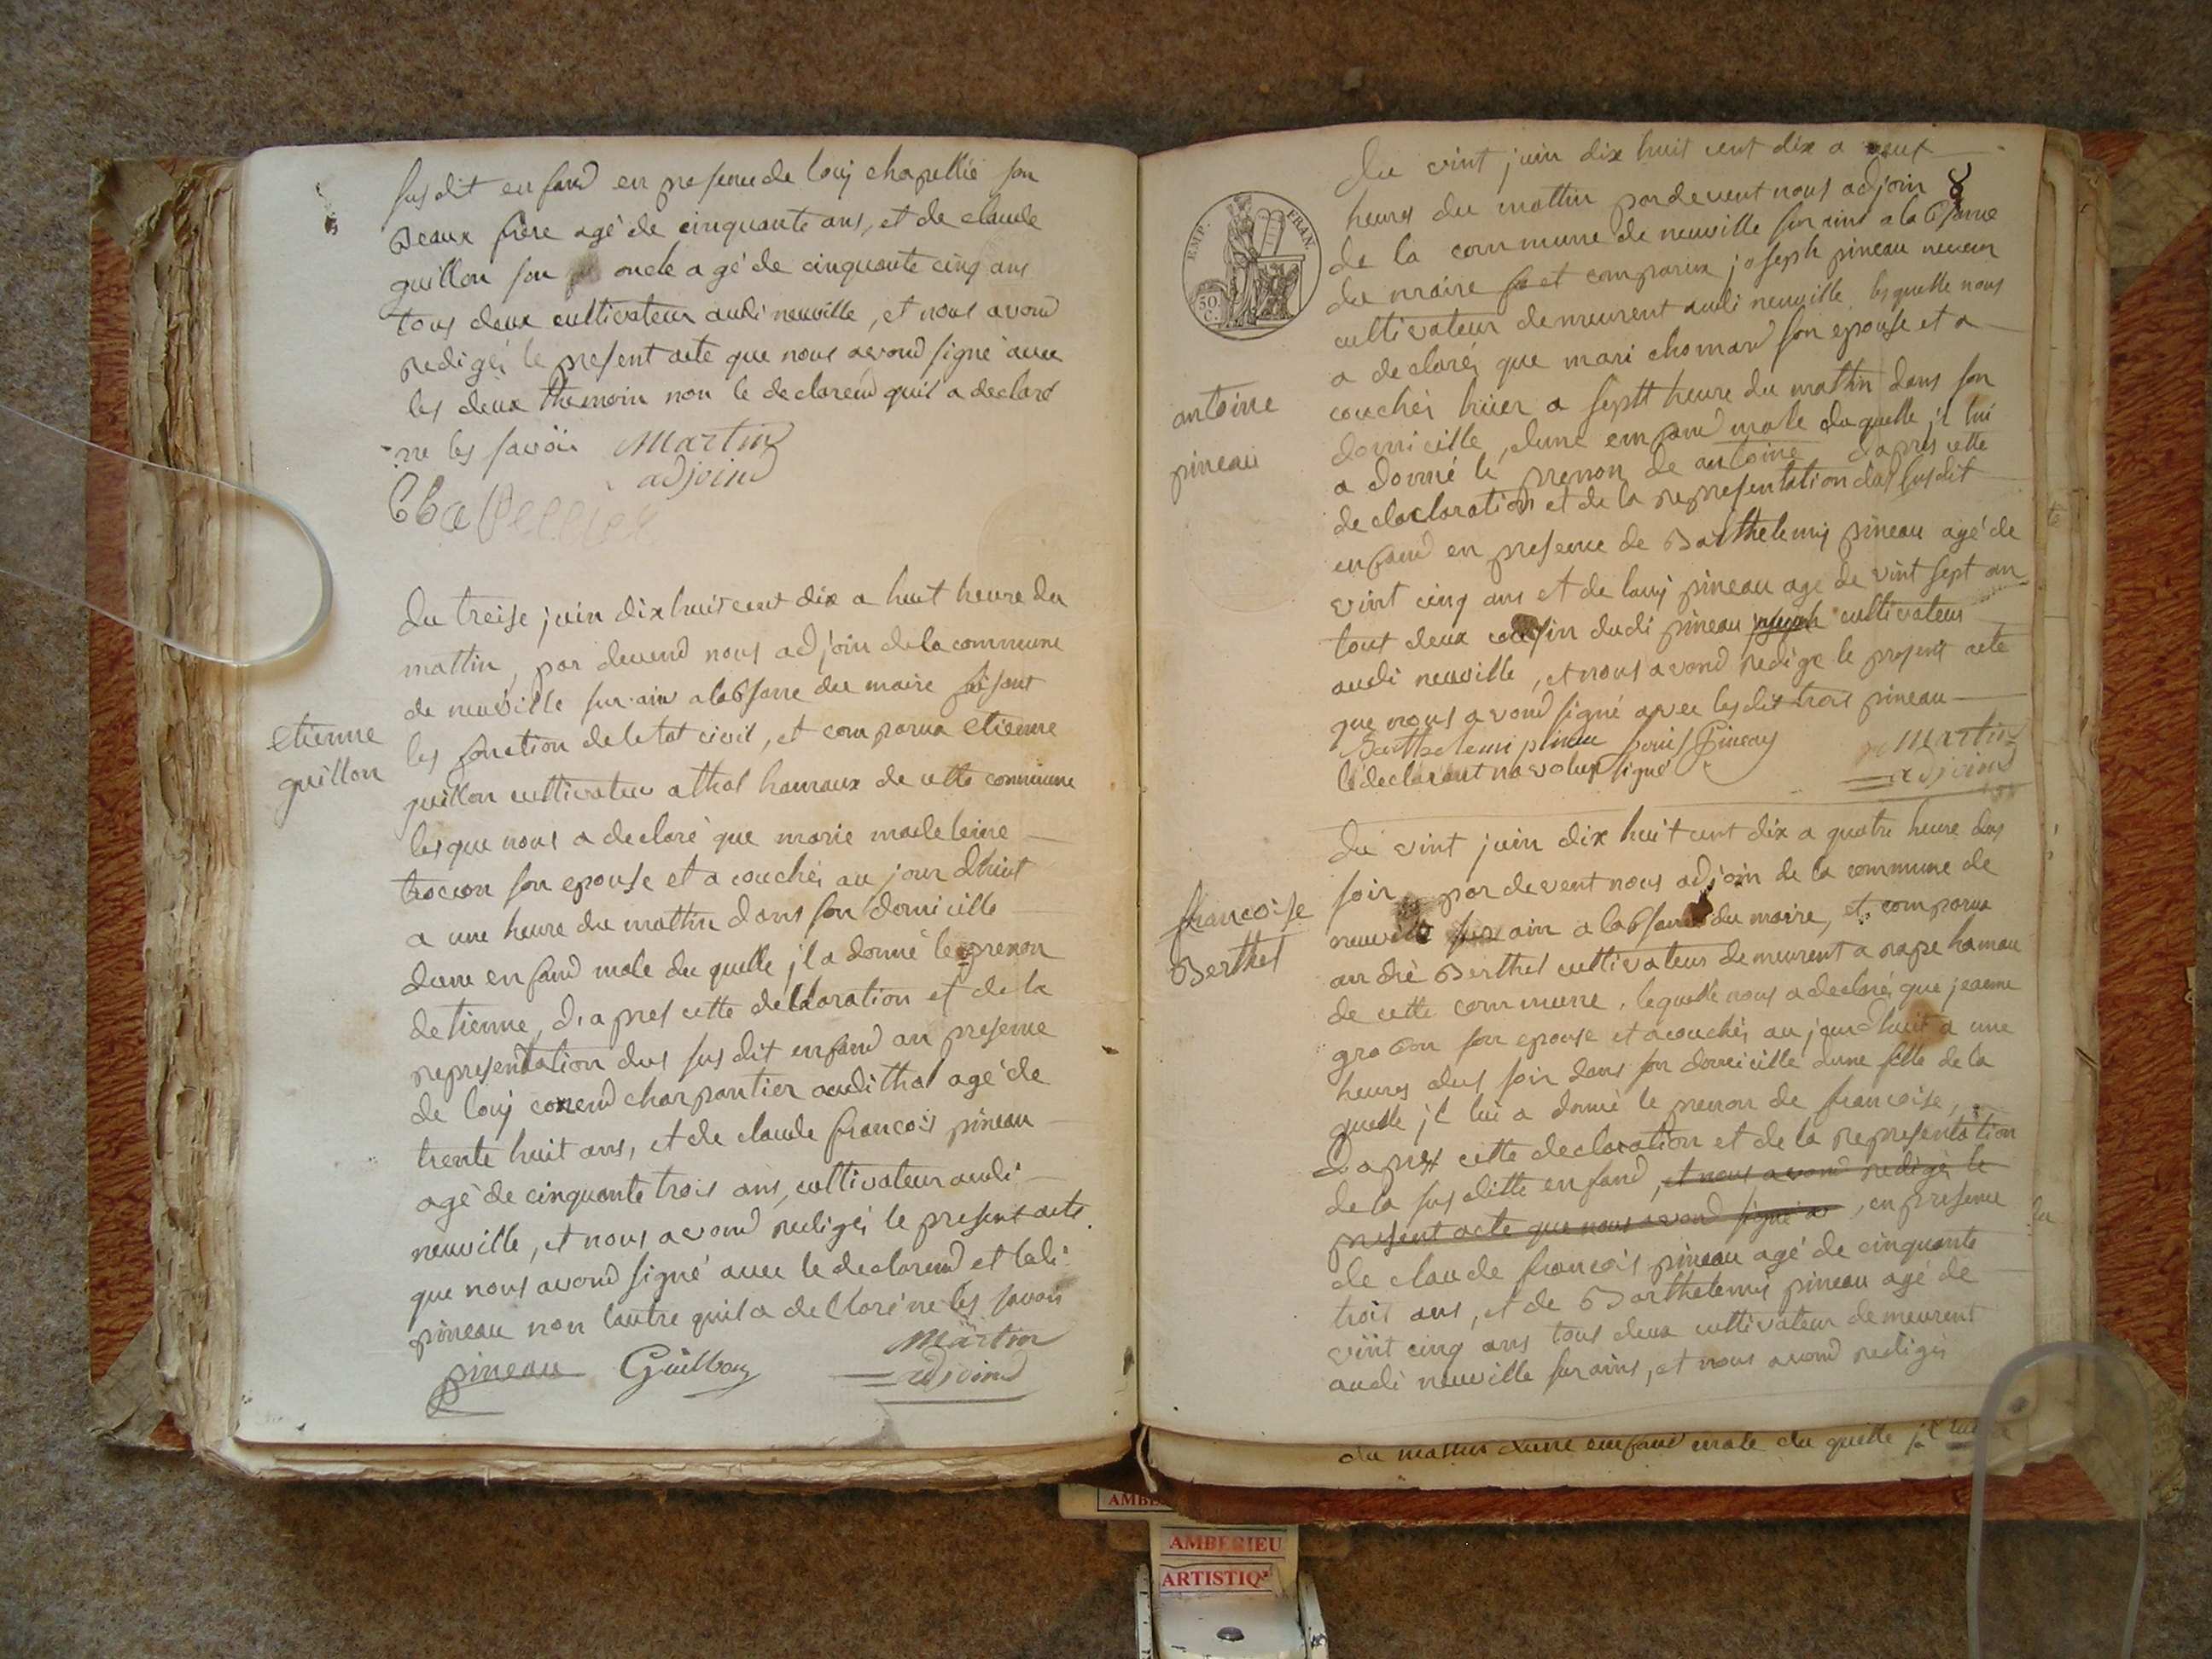 susdit enfand en presence de louj chapellié son
Beaux frere agé de cinquante ans, et de claude
guillon son oncle agé de cinquante cinq ans
tous deux cultivateur audi neuville, et nous avond
redigé le present acte que nous avond signé avec
les deux themoin non le declarend quil a declaré
ne les savoir Martin
adjoind
Chapellier
etienne
guillon
du treise juin dix huit cent dix a huit heure du
mattin, par devend nous adjoin de la commune
de neuville sur ain a labsance du maire faisant
les fonction de letat civil, et comparu etienne
guillon cultivateur a thol hamaux de cette commune
lesque nous a declaré que marie madeleine
trocon son epouse et a couchéé au jour dhuit
a une heure du mattin dans son domicille
dune enfand male du quelle jl a donné le prenon
detienne, d'apres cette declaration et de la
representation dus susdit enfand an presence
de louj conend charpantier audi thol agé de
trente huit ans, et de claude francois pineau
agé de cinquante trois ans, cultivateur audi
neuville, et nous avond redigéi le present acte
que nous avond signé avec le declarend et ledi
pineau non lautre quil a declaré ne les savoir
pineau Guillon Martin
adjoind
EMP. FRAN.
50
C.
antoine
pineau
du vint juin dix huit cent dix a neuf
heures du mattin pardevent nous adjoin
de la commune de neuville sur aint a la bsance
du maire et comparux joseph pineau
cultivateur demeurent audi neuville lesquelle nous
a declaréi que mari chomard son epouse et a
couchéi hiier a septt heure du mattin dans son
domicille, dune enfand male duquelle jl lui
a donné le prenon de antoine dapres cette
declaclaration et de la representation dus susdit
enfand en presence de Barthelemij pineau agé de
vint cinq ans et de louij pineau age de vint sept an
tout deux cousin dudi pineau joseph cultivateur
audi neuville, et nous avond redige le present acte
que nous avond signé avec lesdit trois pineau
Barthelemi pineau Louis Pineau Martin
le declarant na volux signé adjoind
francoise
Berthet
du vint juin dix huit cent dix a quatre heure dus
soir pardevent nous adjoin de la commune de
neuville sur ain a labsance du maire, et comparu
andré Berthet cultivateur demeurent a rape hamau
de cette commune, lequelle nous a declaréi que jeanne
son epouse et a couchéi au jourdhuit a une
heures dus soir dans son domicille dune fille de la
quelle jl lui a donné le prenon de francoise,
D'apres cette declaration et de la representation
de la sus ditte enfand, et nous avond redigéi le
present acte que nous avond signé av, en presence
de claude francois pineau agé de cinquante
trois ans, et de Barthelemij pineau agé de
vint cinq ans tous deux cultivateur demeurent
audi neuville sur ains, et nous avond redigéi
du mattin dune enfand male du quelle jl lui
AMBERIEU
ARTISTIQ